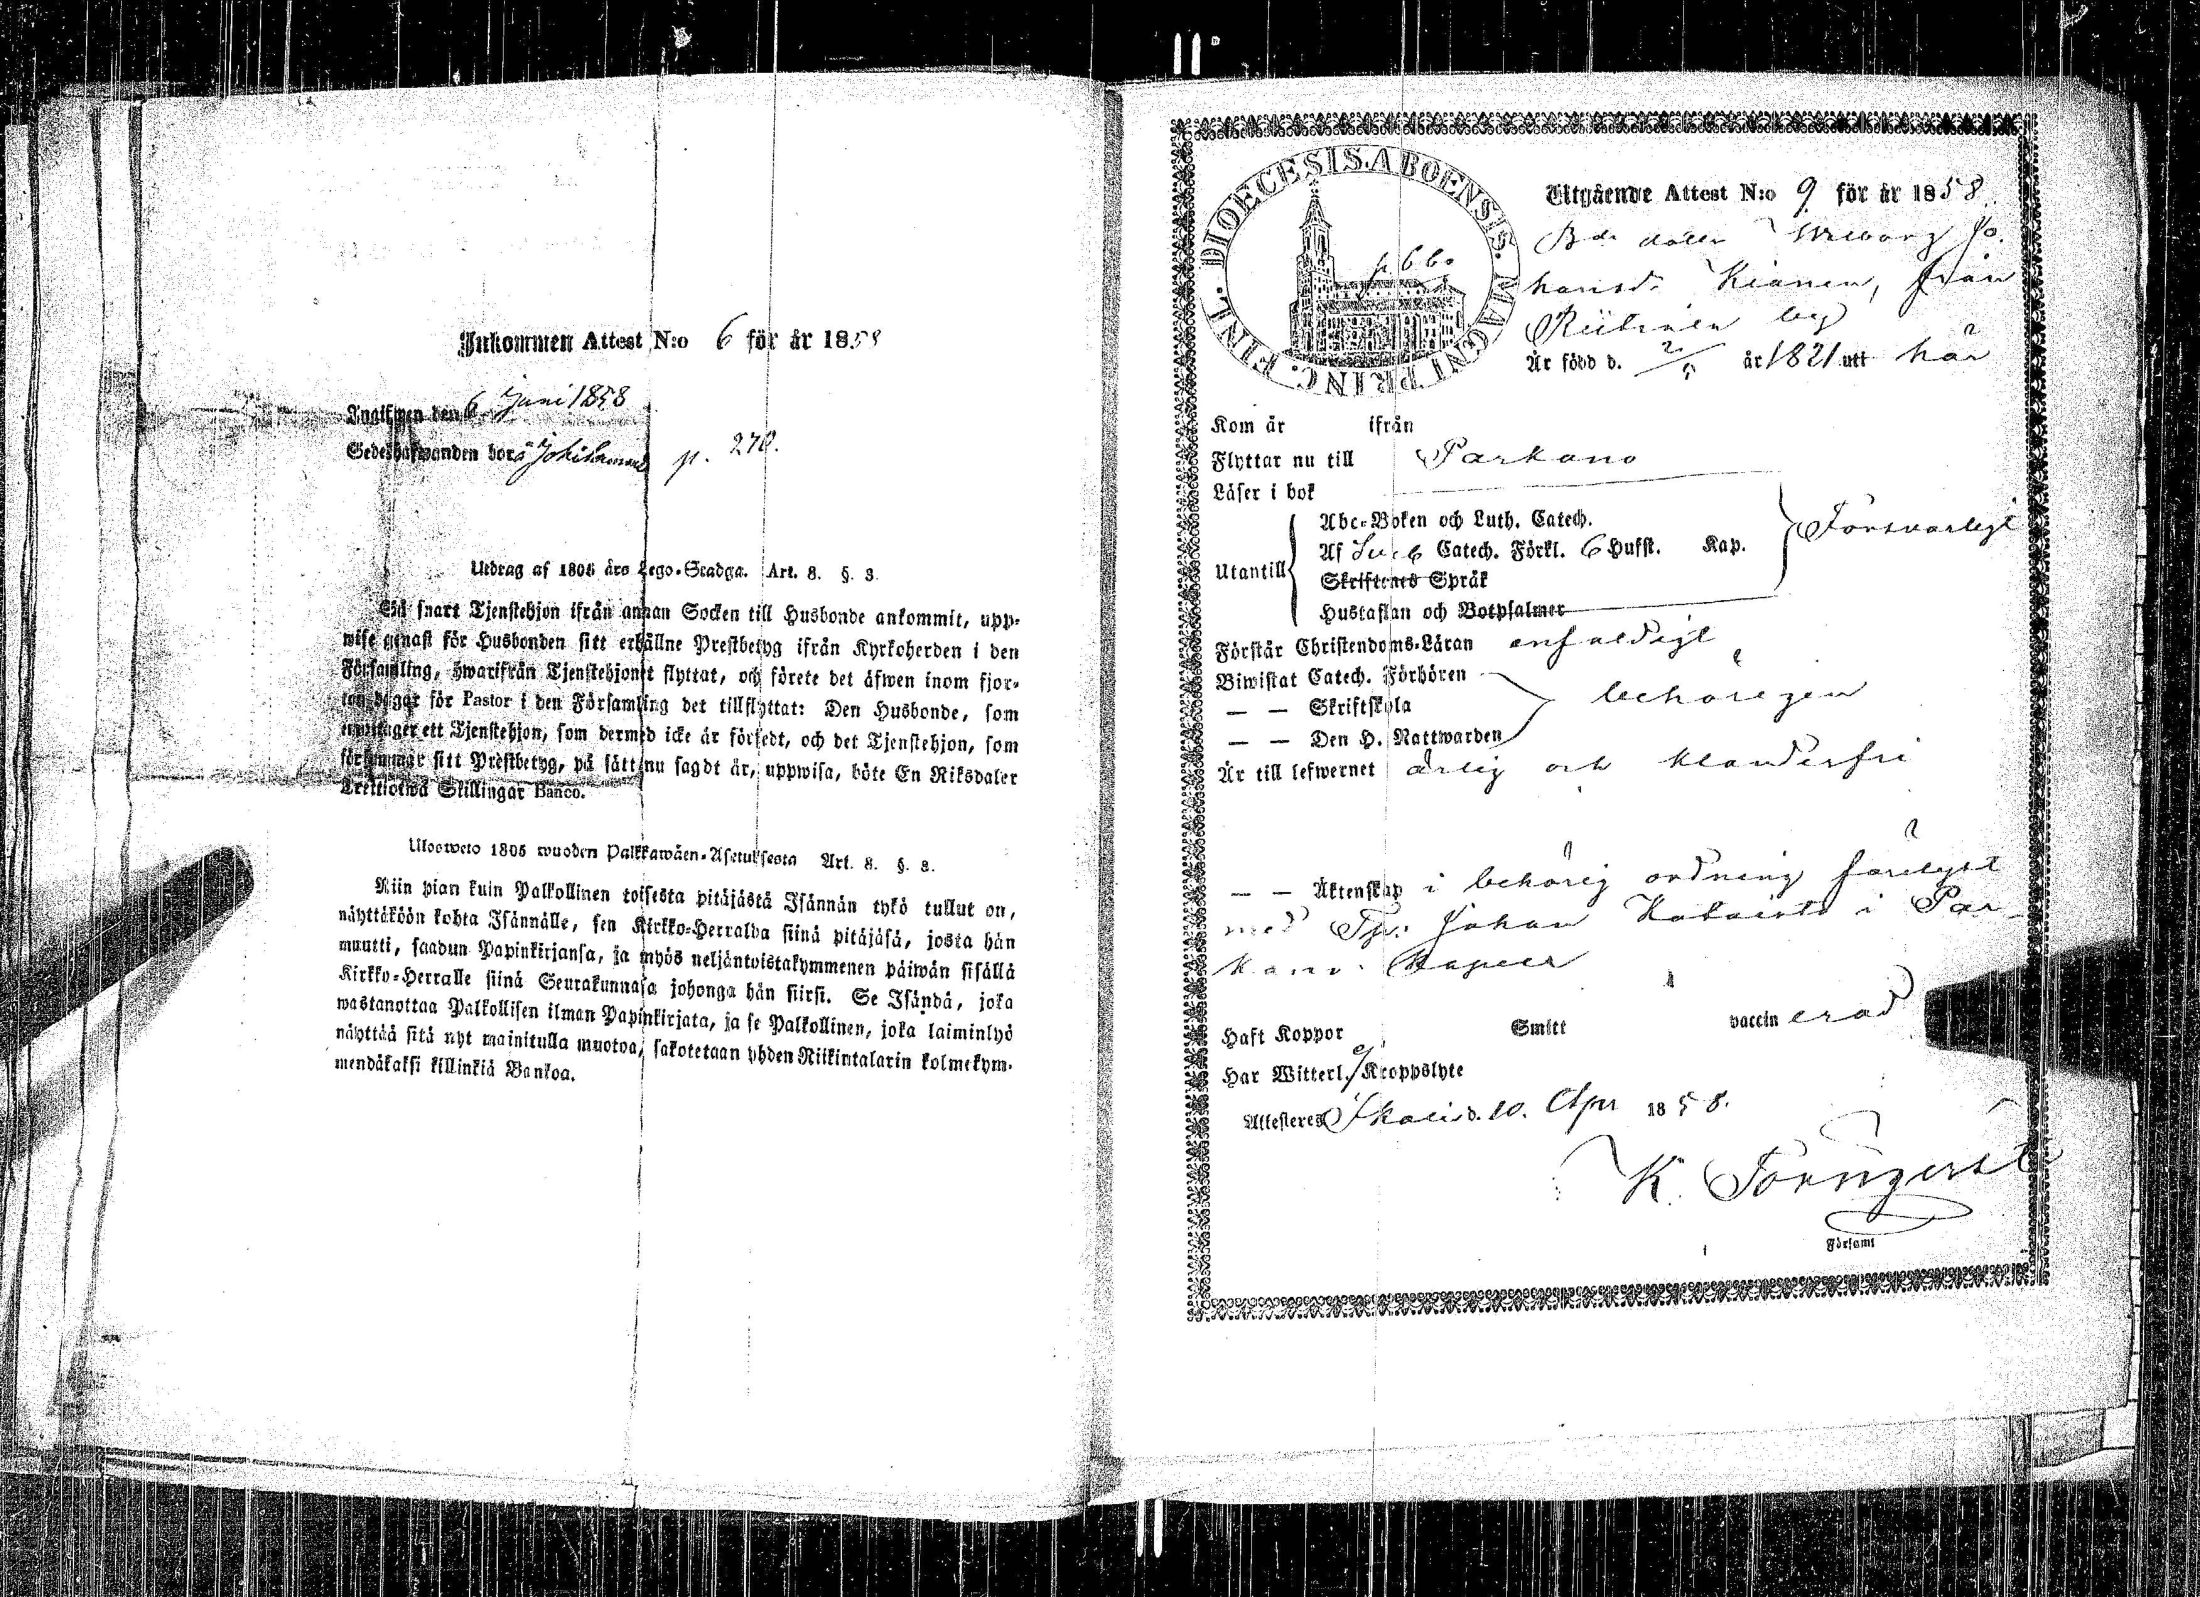 Inkommen Attest N:o 6 för år 1858
Inglifwen den 6 Juni 1858
Sedelhafwanden bor å p. 270.
Utdrag af 1805 års Lego-Stadga. Art. 8. §. 3.
Så snart Tjenstehjon ifrån annan Socken till Husbonde ankommit, upp-
wise genast för Husbonden sitt erhållne Prestbetyg ifrån Kyrkoherden i den
Församling, hwarifrån Tjenstehjonet flyttat, och förete det äfwen inom fjor-
ton dagar för Pastor i den Församling det tillflyttat: Den Husbonde, som
emottager ett Tjenstehjon, som dermed icke är försedt, och det Tjenstehjon, som
försummar sitt Prestbetyg, på sätt nu sagdt är, uppwisa, böte En Riksdaler
Trettiotwå Skillingar Banco.
Ulosweto 1805 wuoden Palkkawäen-Asetuksesta Art. 8. §. 3.
Niin pian kuin Palkollinen toisesta pitäjästä Isännän tykö tullut on,
näyttäköön kohta Isännälle, sen Kirkko-Herralda siinä pitäjäsä, josta hän
muutti, saadun Papinkirjansa, ja myös neljäntoistakymmenen päiwän sisällä
Kirkko-Herralle siinä Seurakunnasa johonga hän siirsi. Se Isändä, joka
wastanottaa Palkollisen ilman Papinkirjata, ja se Palkollinen, joka laiminlyö
näyttää sitä nyt mainitulla muotoa, sakotetaan yhden Riikintalarin kolmekym-
mendäkaksi killinkiä Bankoa.
DIOECESIS. ABOENSIS. MAGNI PRINC. FINL.
p. 660
Utgående Attest N:o 9 för år 1858.
Bde dotter Walborg Jo-
hansd. Kianen, från
by
Är född d. år 1821 utt här
Kom år ifrån
Flyttar nu till Parkano
Läser i bok
Utantill
Abc-Boken och Luth. Catech.
Af Catech. Förkl. 6 Hufst. Kap.
Skriftenes Språk
Hustaflan och Botpsalmer
Försvarligt
Förstår Christendoms-Läran enfaldigt
Biwistat Catech. Förhören
— — Skriftskola
— — Den H. Nattwarden
behörigen
Är till lefwernet ärlig och klanderfri
— — Äktenskap i behörig ordning förelyst
med Johan i Par-
kano Kapell
Haft Koppor Smitt vaccinerad
Har Witterl. ej Kroppslyte
Attesteres Ikalis d. 10. Apr 1858.
K.
Församl